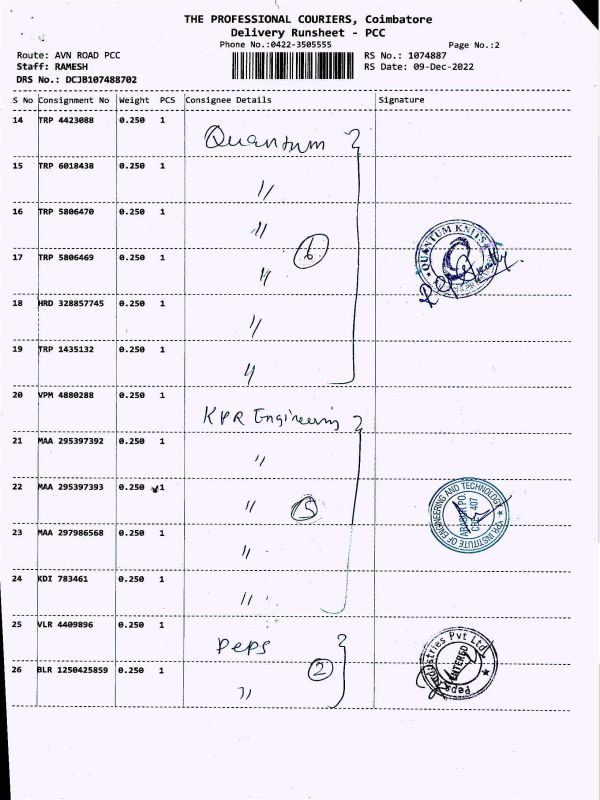 THE PROFESSIONAL COURIERS, Coimbatore
Delivery Runsheet - PCC
Phone No.:0422-3505555
Page No.:2
Route: AVN ROAD PCC
RS No.: 1074887
Staff: RAMESH
RS Date: 09-Dec-2022
DRS No.: DCJB107488702
S No Consignment No Weight PCS Consignee Details Signature
14 TRP 4423088 0.250 1 Quantum
15 TRP 6018438 0.250 1 "
16 TRP 5806470 0.250 1 "
6
17 TRP 5806469 0.250 1 "
QUANTUM KNITS
18 HRD 328857745 0.250 1 "
19 TRP 1435132 0.250 1 "
20 VPM 4880288 0.250 1 KPR Engineering
21 MAA 295397392 0.250 1 "
22 MAA 295397393 0.250 1 "
5
KPR INSTITUTE OF ENGINEERING AND TECHNOLOGY
ARASUR PO.
CBE - 407
23 MAA 297986568 0.250 1 "
24 KDI 783461 0.250 1 "
25 VLR 4409896 0.250 1 Peps
2
Peps Industries Pvt Ltd.
ENTERED
26 BLR 1250425859 0.250 1 "